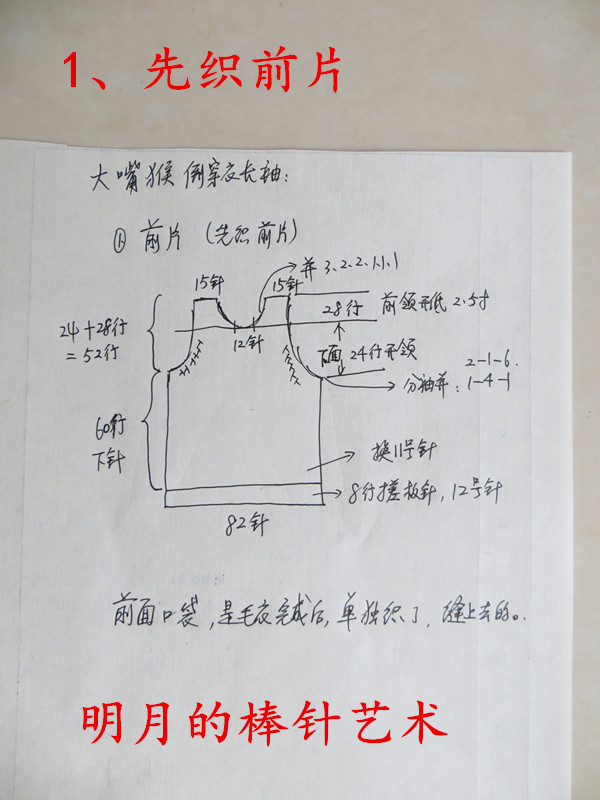 1、先织前片
大嘴猴倒穿衣长袖:
① 前片 (先织前片)
并 3、2、2、1、1、1
15针
15针
28行
前领开低 2.5寸
24+28行
=52行
12针
下面 24行开领
2-1-6.
分袖并: 1-4-1
60行
下针
换11号针
8行搓板针, 12号针
82针
前面口袋,是毛衣完成后,单独织了,缝上去的。
明月的棒针艺术